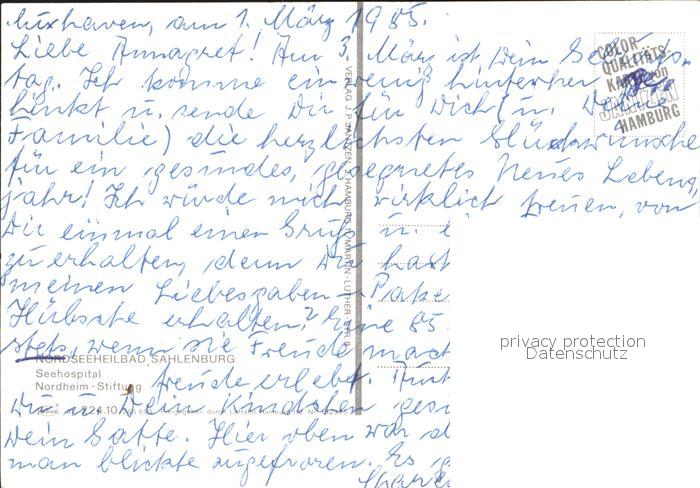 Cuxhaven, am 1. März 1985.
Liebe Annagret! Am 3. März ist Dein Geburts-
tag. Ich komme ein wenig hinterher ge-
hinkt u. sende Dir für Dich (u. Deine
Familie) die herzlichsten Glückwünsche
für ein gesundes, gesegnetes Neues Lebens
jahr! Ich würde mich wirklich freuen, von
Dir einmal einen Gruß u.
zu erhalten, denn Du hast
meinen Liebesgaben - Pake
Hübsche erhalten? Eine 85
stets, wenn sie Freude mach
Freude erlebt. Auch
Du u. Dein Kindchen gesu
Dein Gatte. Hier oben war
man blickte zugefroren. Es
COLOR-
QUALITÄTS-
KARTE von
JANTZEN
HAMBURG
VERLAG J. P. JANTZEN, 2 HAMBURG 1, MARTIN-LUTHER-STR.
NORDSEEHEILBAD SAHLENBURG
Seehospital
Nordheim-Stiftung
privacy protection
Datenschutz